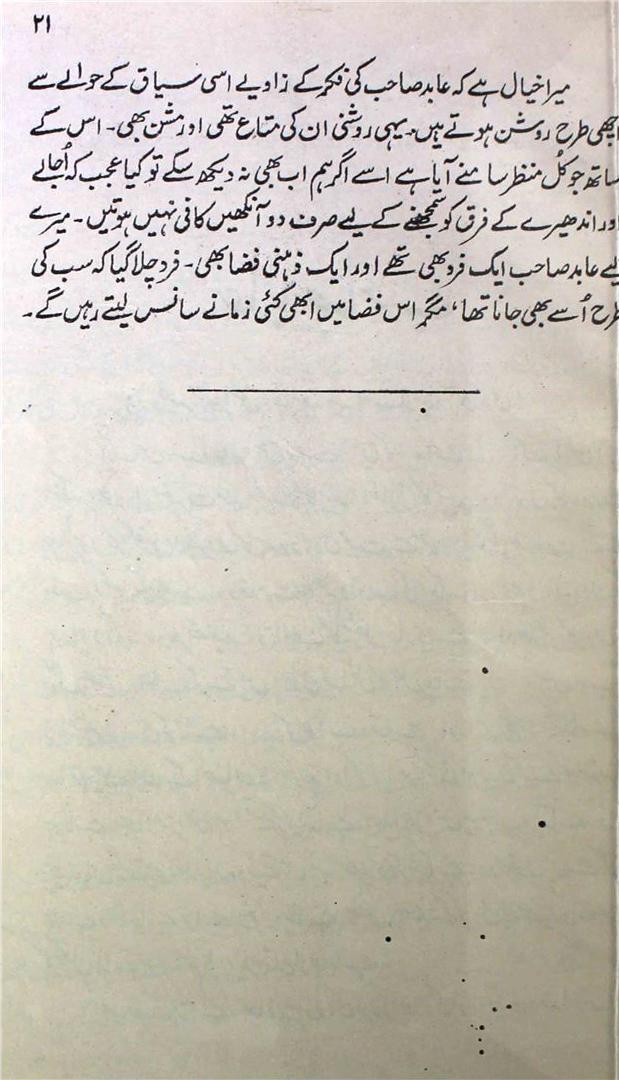 ۲۱
میرا خیال ہے کہ عابد صاحب کی فکر کے زاویے اسی سیاق کے حوالے سے
اچھی طرح روشن ہوتے ہیں۔ یہی روشنی ان کی متاع تھی اور مشن بھی۔ اس کے
ساتھ جو کُل منظر سامنے آیا ہے اسے اگر ہم اب بھی نہ دیکھ سکے تو کیا عجب کہ اُجالے
اور اندھیرے کے فرق کو سمجھنے کے لیے صرف دو آنکھیں کافی نہیں ہوتیں۔ میرے
لیے عابد صاحب ایک فرد بھی تھے اور ایک ذہنی فضا بھی۔ فرد چلا گیا کہ سب کی
طرح اُسے بھی جانا تھا، مگر اس فضا میں ابھی کئی زمانے سانس لیتے رہیں گے۔